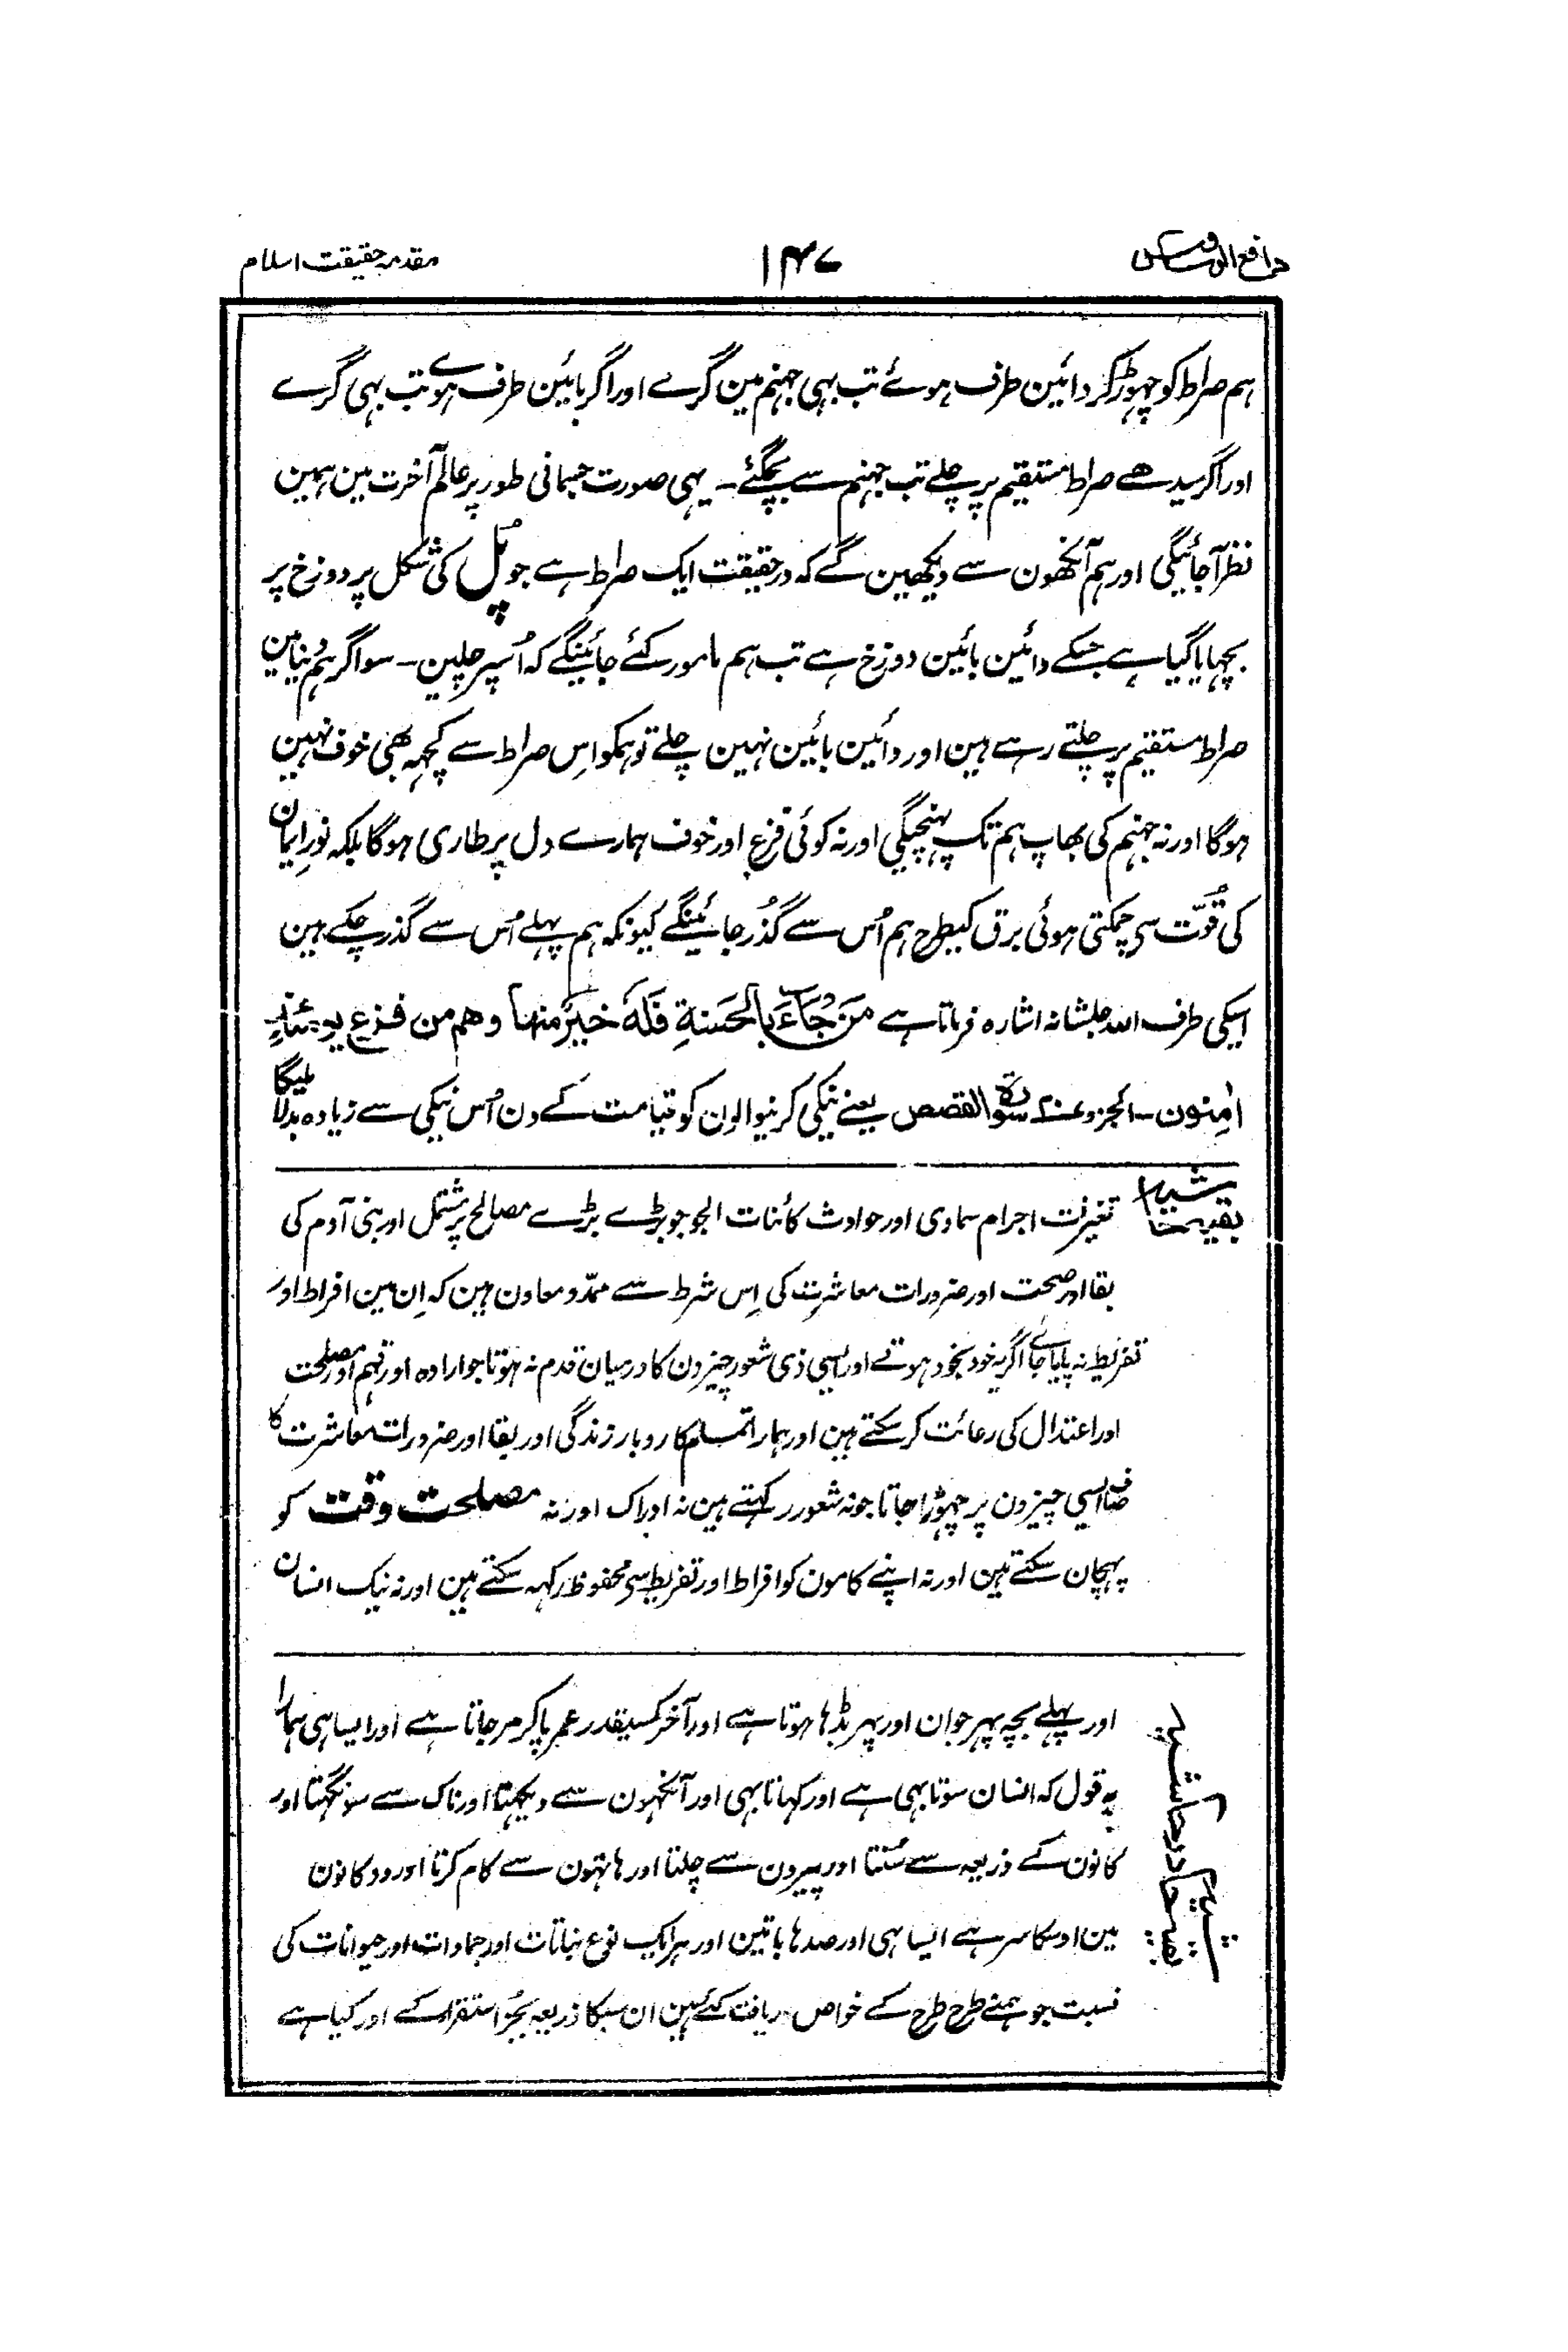 دافع الوساوس
۱۴۷
مقدمہ حقیقت اسلام
ہم صراط کو چہوڑ کر دائین طرف ہوئے تب بہی جہنم مین گرے اور اگر بائین طرف ہوے تب بہی گرے
اور اگر سیدھے صراط مستقیم پر چلے تب جہنم سے بچگئے ۔ یہی صورت جسمانی طور پر عالم آخرت مین ہمین
نظر آجائیگی اور ہم آنکھون سے دیکھین گے کہ درحقیقت ایک صراط ہے جو پُل کی شکل پر دوزخ پر
بچہایا گیا ہے جسکے دائین بائین دوزخ ہے تب ہم مامور کئے جائینگے کہ اُسپر چلین ۔ سو اگر ہم دُنیا مین
صراط مستقیم پر چلتے رہے ہین اور دائین بائین نہین چلے تو ہمکو اِس صراط سے کچہہ بھی خوف نہین
ہوگا اور نہ جہنم کی بھاپ ہم تک پہنچیگی اور نہ کوئی فزع اور خوف ہمارے دل پر طاری ہوگا بلکہ نورِ ایمان
کی قُوّت سی چمکتی ہوئی برق کیطرح ہم اُس سے گذُر جائینگے کیونکہ ہم پہلے اُس سے گذر چکے ہین
اسیکی طرف اللہ جلشانہ اشارہ فرماتا ہے مَنۡ جَآءَ بِالحَسَنةِ فَلَهٗ خَيرٌ منها وهم من فزع يومئذٍ
اٰمِنون ۔ الجزو نمبر ۲۰ سورۃ القصص یعنے نیکی کرنیوالون کو قیامت کے دن اُس نیکی سے زیادہ بدلا ملیگا
بقیہ حاشیہ
تغیرات اجرام سماوی اور حوادث کائنات الجو جو بڑے بڑے مصالح پر مشتمل اور بنی آدم کی
بقا اور صحت اور ضرورات معاشرت کی اِس شرط سے ممدّ و معاون ہین کہ اِن مین افراط اور
تفریط نہ پایا جائے اگر یہ خود بخود ہوتے اور ایسی ذی شعور چیزون کا درمیان قدم نہ ہوتا جو ارادہ اور فہم اور مصلحت
اور اعتدال کی رعائت کر سکتے ہین اور ہمارا تمام کاروبار زندگی اور بقا اور ضرورات معاشرت کا
صرف ایسی چیزون پر چہوڑا جاتا جو نہ شعور رکہتے ہین نہ ادراک اور نہ مصلحت وقت کو
پہچان سکتے ہین اور نہ اپنے کامون کو افراط اور تفریط سی محفوظ رکہہ سکتے ہین اور نہ نیک انسان
بقیہ حاشیہ در حاشیہ
اور پہلے بچہ پہر جوان اور پہر بڈہا ہوتا ہے اور آخر کسیقدر عمر پاکر مرجاتا ہے اور ایسا ہی ہمارا
یہ قول کہ انسان سوتا بہی ہے اور کہاتا بہی اور آنکہون سے دیکہتا اور ناک سے سونگہتا اور
کانون کے ذریعہ سے سُنتا اور پیرون سے چلتا اور ہاتہون سے کام کرتا اور دو کانون
مین اوسکا سر ہے ایسا ہی اور صدہا باتین اور ہر ایک نوع نباتات اور جمادات اور حیوانات کی
نسبت جو ہمنے طرح طرح کے خواص دریافت کئے ہین ان سبکا ذریعہ بجُز استقرار کے اور کیا ہے